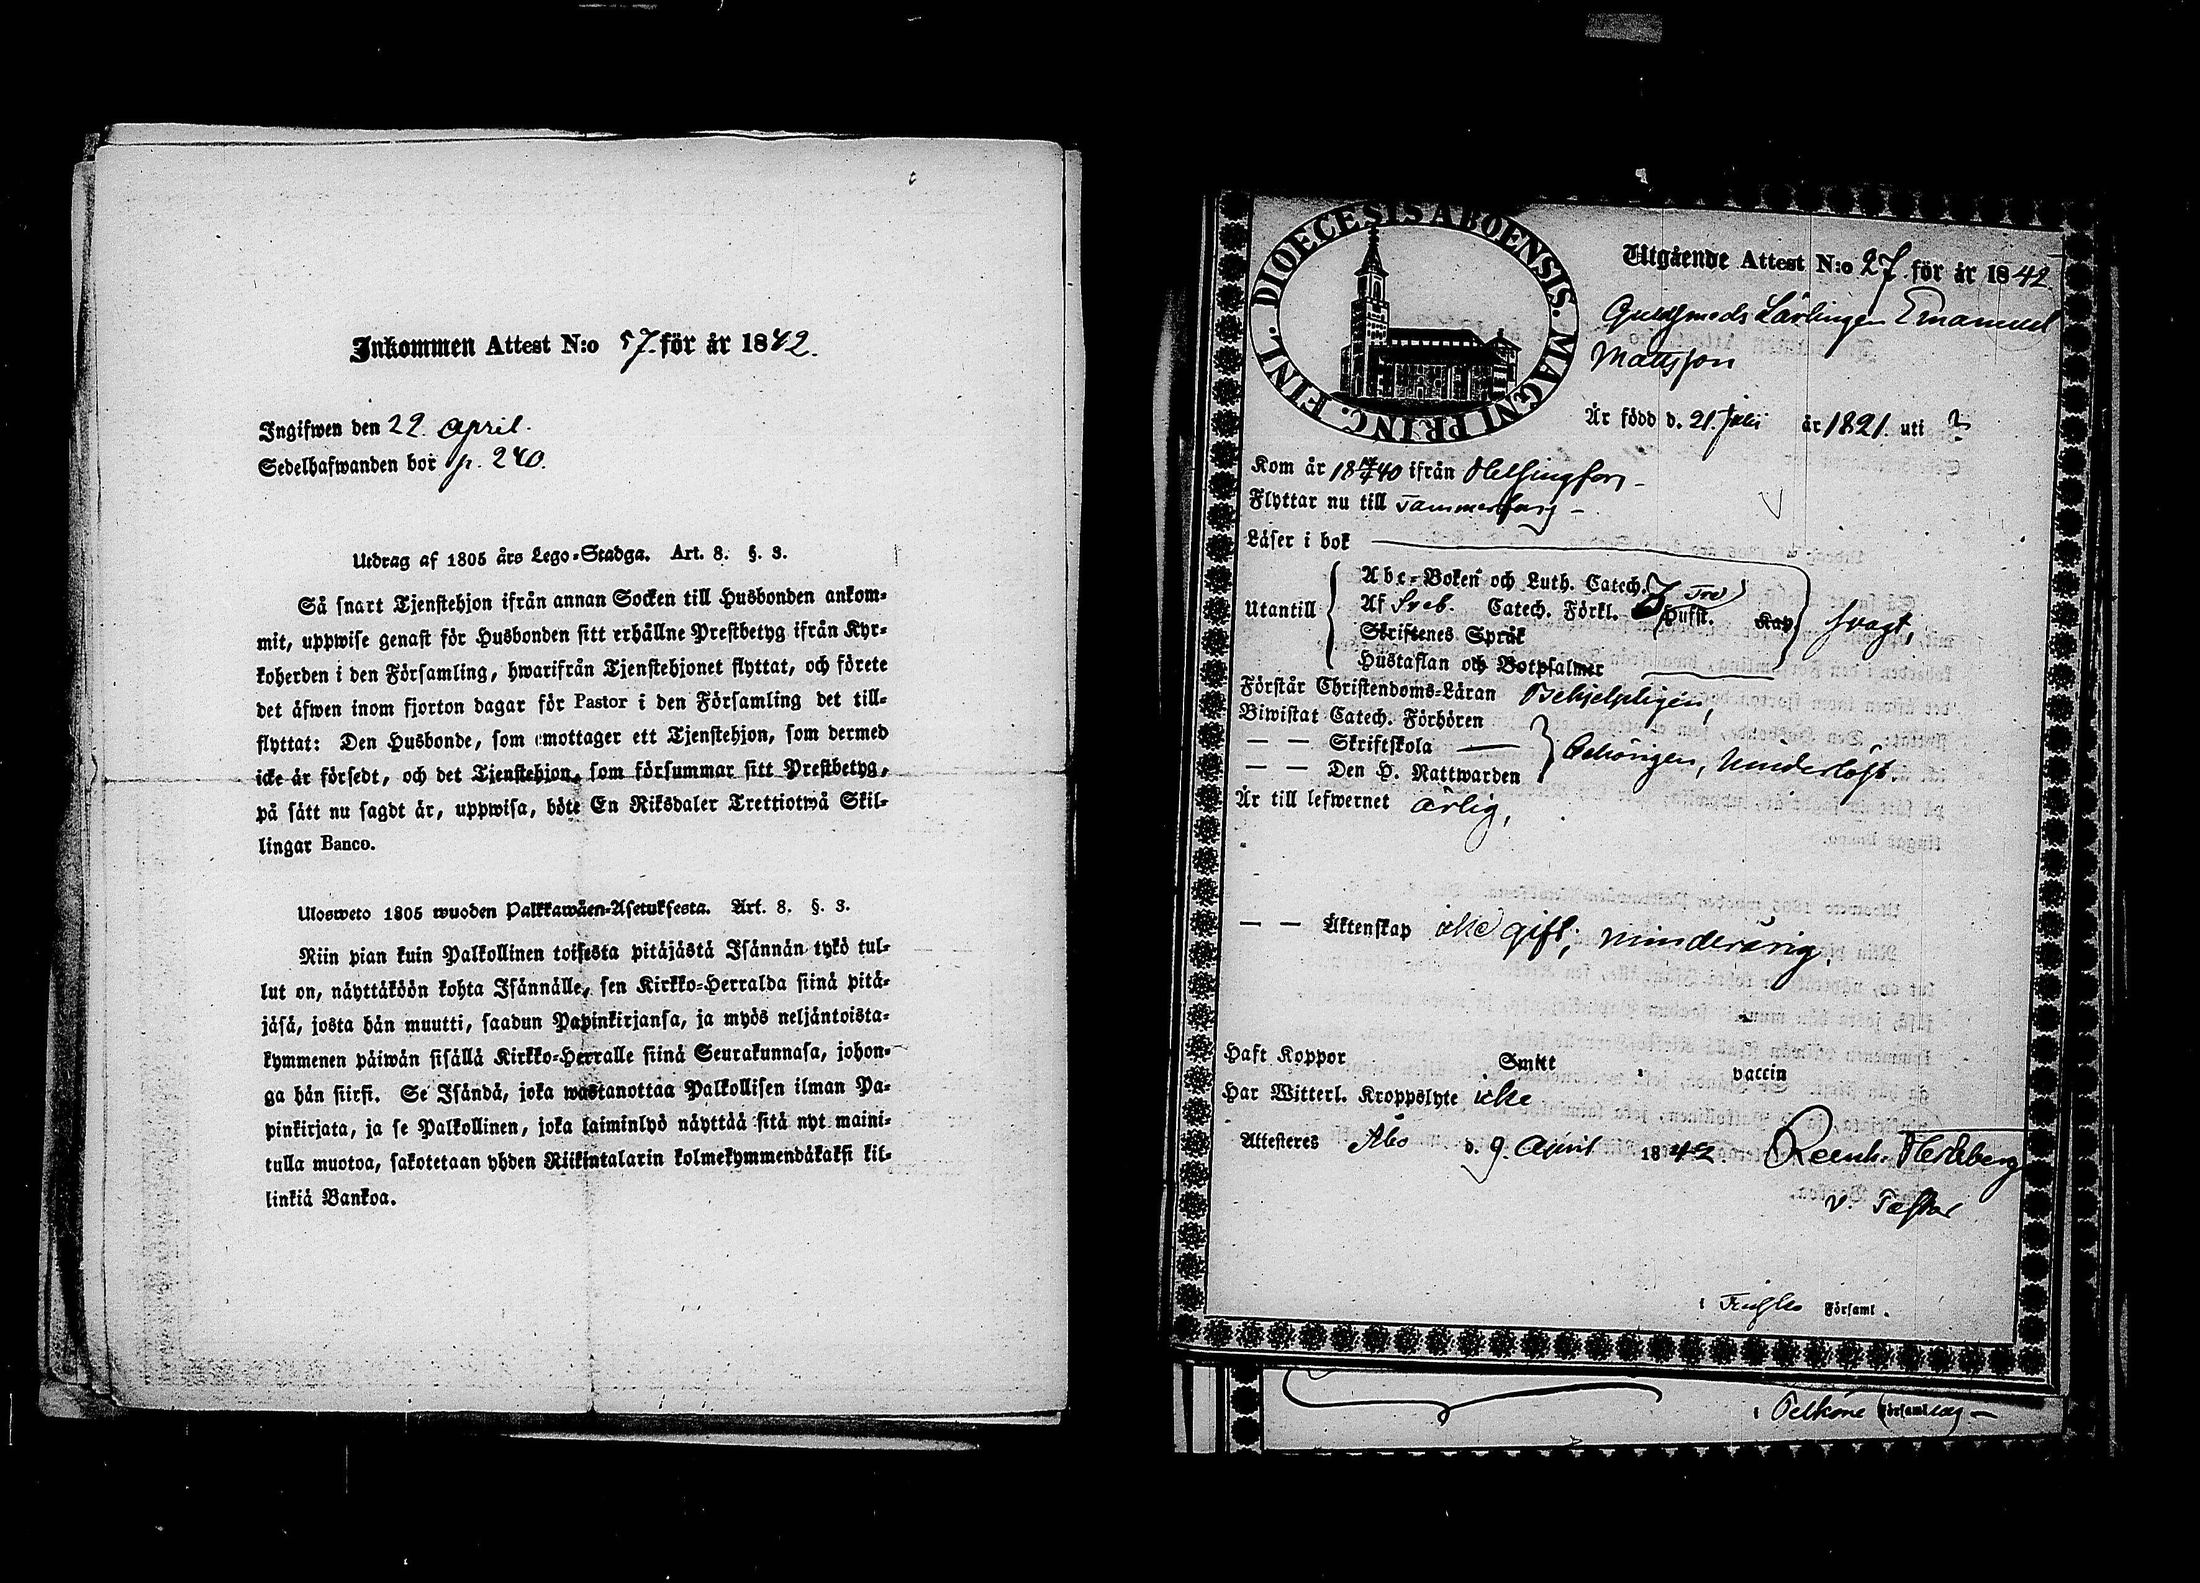 Inkommen Attest N:o 57. för år 1842.
Ingifwen den 22. April.
Sedelhafwanden bor p. 240.
Utdrag af 1805 års Lego-Stadga. Art. 8. §. 3.
Så snart Tjenstehjon ifrån annan Socken till Husbonden ankom-
mit, uppwise genast för Husbonden sitt erhållne Prestbetyg ifrån Kyr-
koherden i den Församling, hwarifrån Tjenstehjonet flyttat, och förete
det äfwen inom fjorton dagar för Pastor i den Församling det till-
flyttat: Den Husbonde, som emottager ett Tjenstehjon, som dermed
icke är försedt, och det Tjenstehjon, som försummar sitt Prestbetyg,
på sätt nu sagdt är, uppwisa, böte En Riksdaler Trettiotwå Skil-
lingar Banco.
Ulosweto 1805 wuoden Palkkawäen-Asetuksesta. Art. 8. §. 3.
Niin pian kuin Palkollinen toisesta pitäjästä Isännän tykö tul-
lut on, näyttäköön kohta Isännälle, sen Kirkko-Herralda siinä pitä-
jäsä, josta hän muutti, saadun Papinkirjansa, ja myös neljäntoista-
kymmenen päiwän sisällä Kirkko-Herralle siinä Seurakunnasa, johon-
ga hän siirsi. Se Isändä, joka wastanottaa Palkollisen ilman Pa-
pinkirjata, ja se Palkollinen, joka laiminlyö näyttää sitä nyt maini-
tulla muotoa, sakotetaan yhden Riikintalarin kolmekymmendäkaksi kil-
linkiä Bankoa.
DIOECESIS ABOENSIS. MAGNI PRINC. FINL.
Utgående Attest N:o 27. för år 1842
Lärlingen Emanuel
Mattsson
Är född d. 21. Julii år 1821. uti ?
Kom år 1840 ifrån Helsingfors
Flyttar nu till Tammerfors
Läser i bok
Utantill
Abc-Boken och Luth. Catech.
Af Sveb. Catech. Förkl. Hufst. Kap. svagt,
Skriftenes Språk
Hustaflan och Botpsalmer
Förstår Christendoms-Läran Behjelpligen,
Biwistat Catech. Förhören
— — Skriftskola — Behörigen, hinderlöst.
— — Den H. Nattwarden
Är till lefwernet ärlig,
— — Äktenskap icke gift, minderårig.
Haft Koppor Smitt vaccin
Har Witterl. Kroppslyte icke
Attesteres Åbo d. 9. April 1842. Reinh. Hertzberg
v. Pastor
i Församl.
i Pelkäne Församling